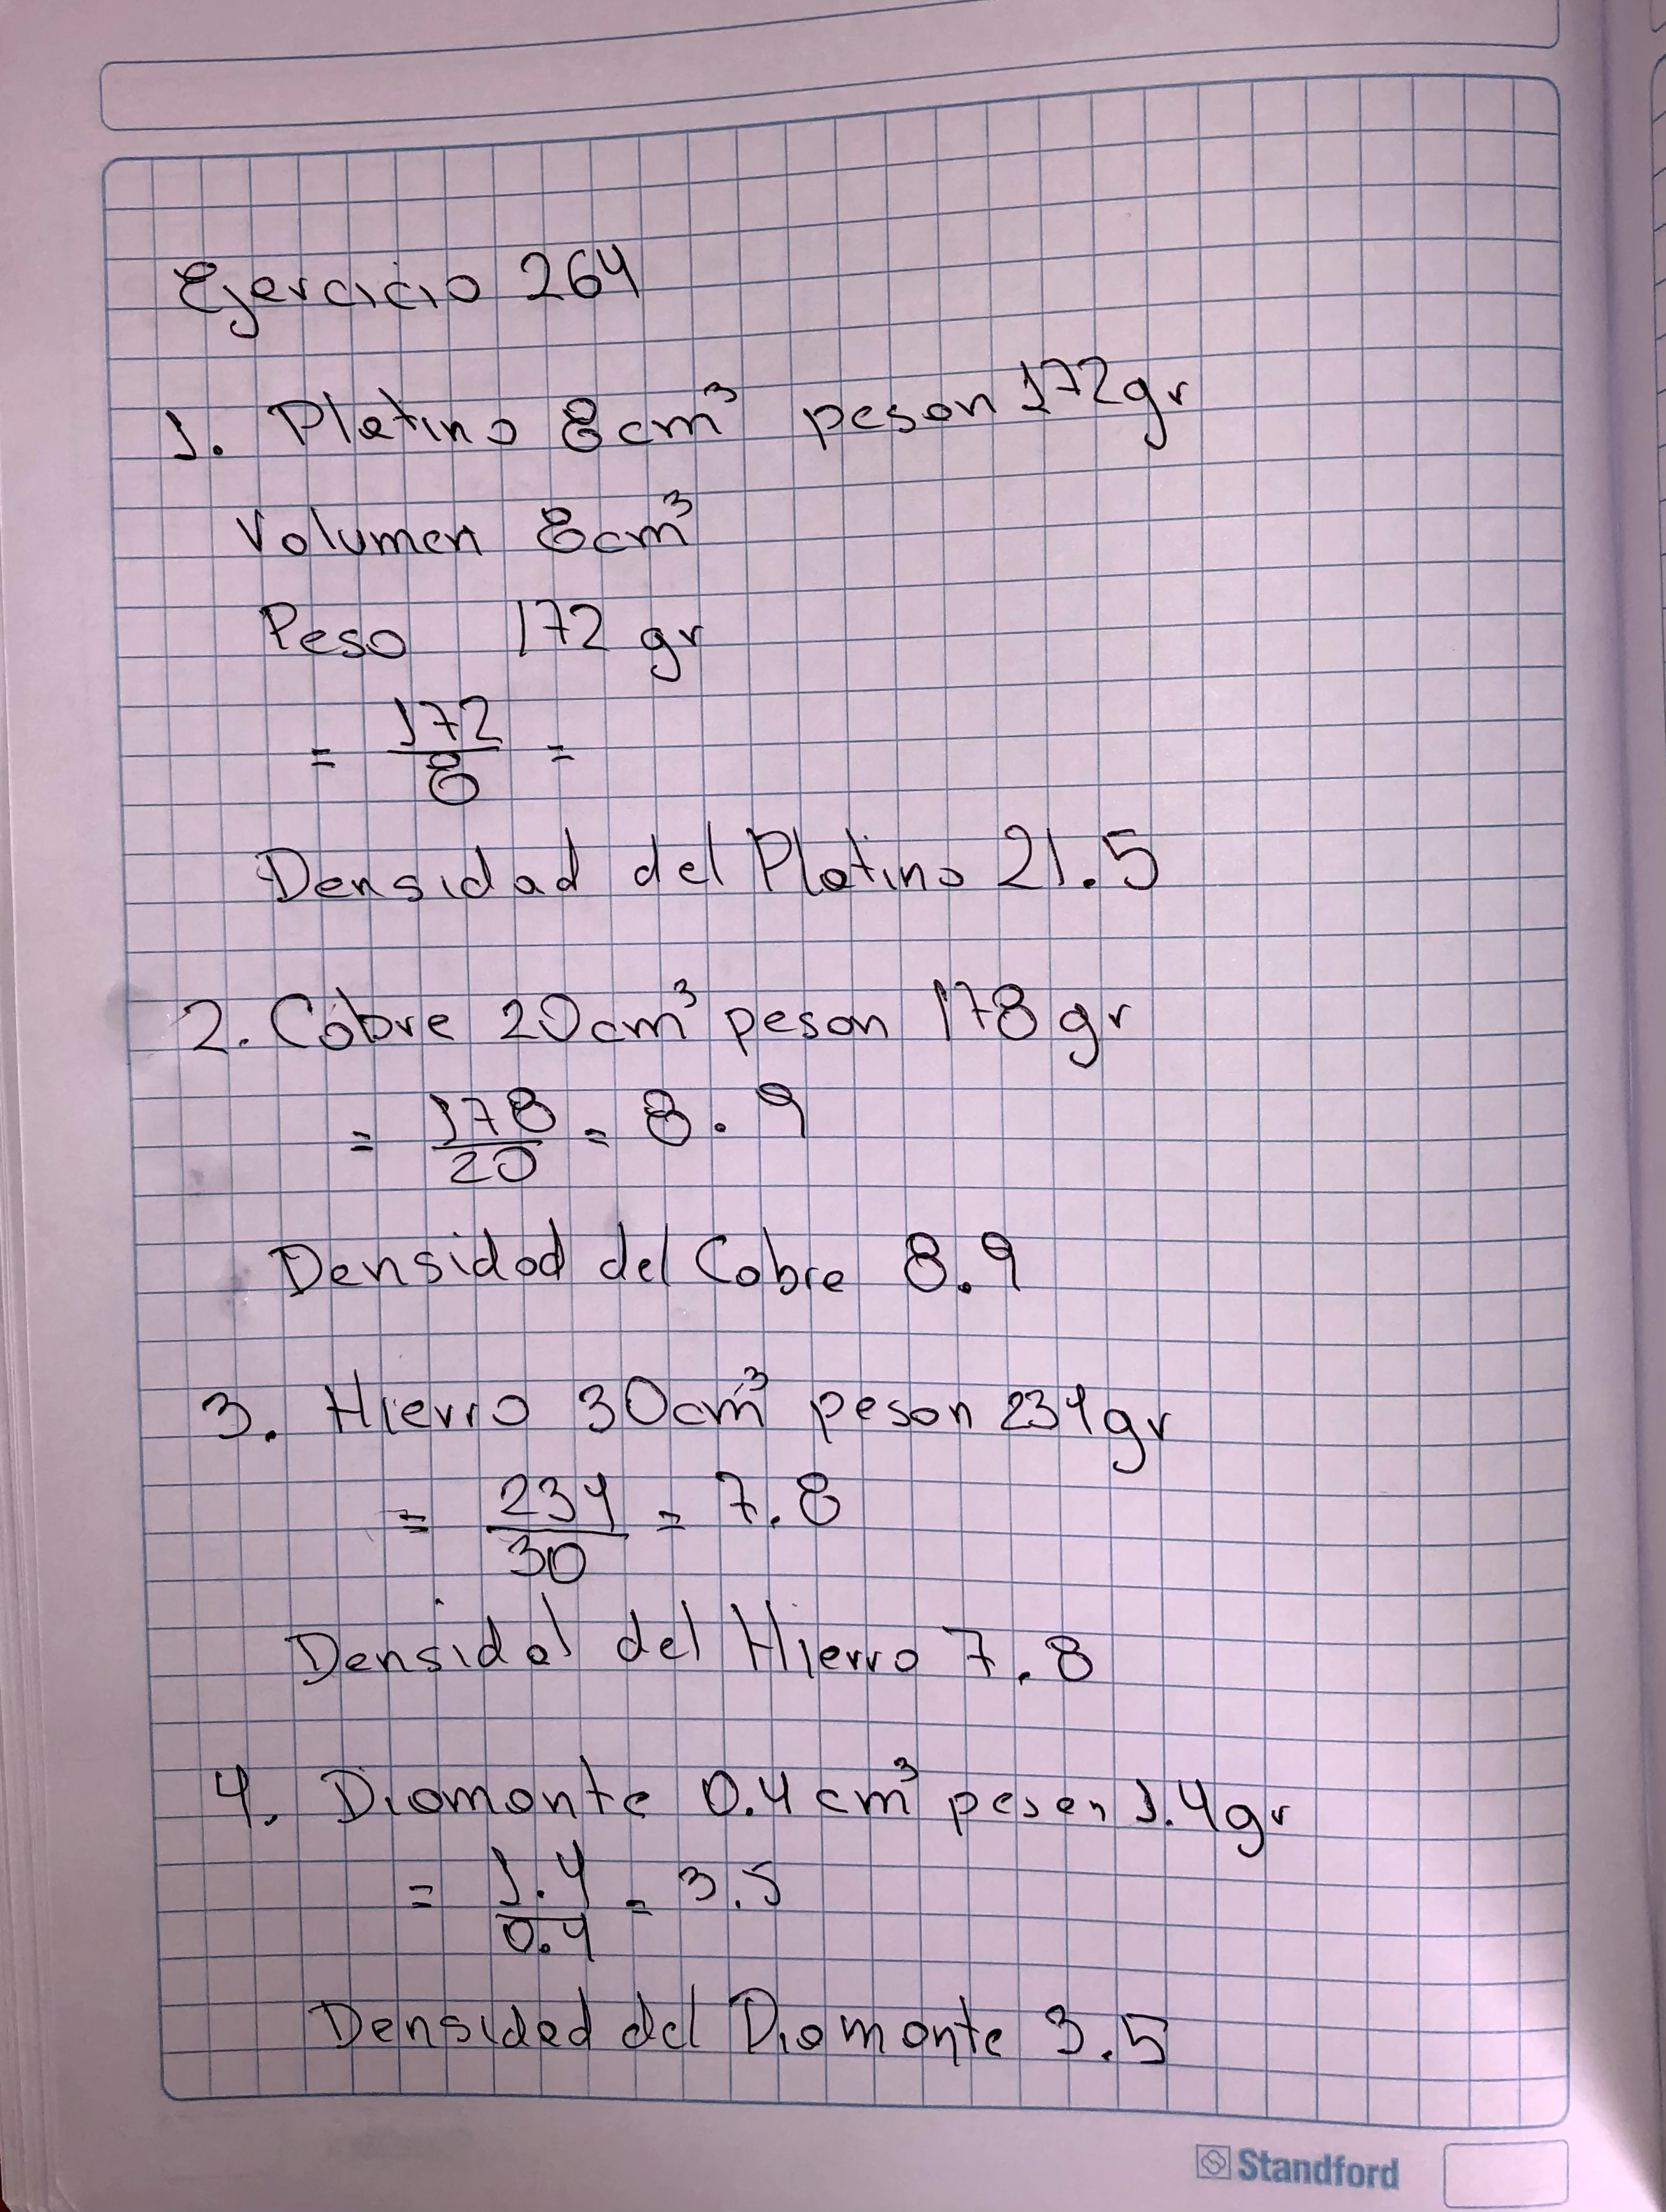 Ejercicio 264
1. Platino 8cm³ pesan 172gr
Volumen 8cm³
Peso 172 gr
= 172/8 =
Densidad del Platino 21.5
2. Cobre 20cm³ pesan 178 gr
= 178/20 = 8.9
Densidad del Cobre 8.9
3. Hierro 30cm³ pesan 234gr
= 234/30 = 7.8
Densidad del Hierro 7.8
4. Diamante 0.4cm³ pesan 1.4gr
= 1.4/0.4 = 3.5
Densidad del Diamante 3.5
Standford